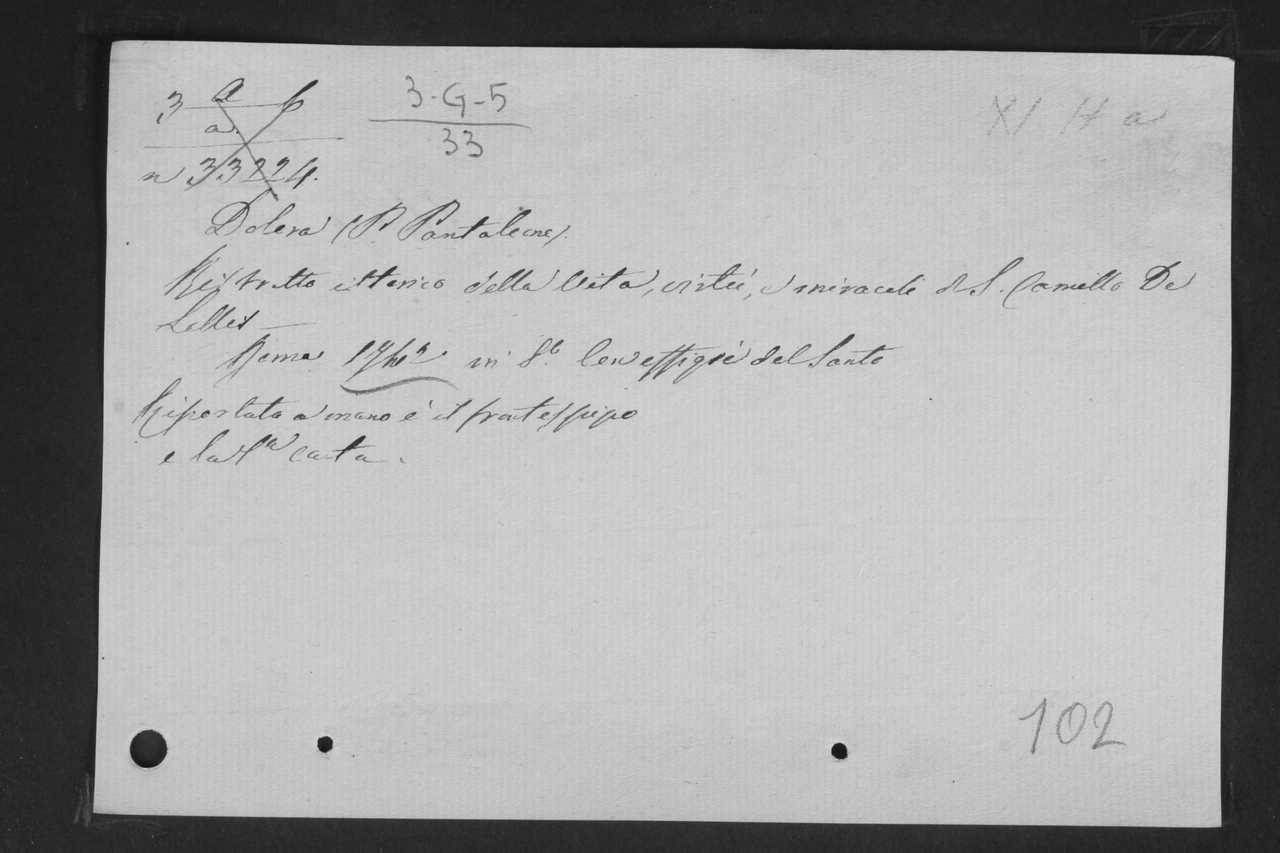 3 a 6
a
n 33224.
3-G-5
33
XI H a
Dolera (P. Pantaleone).
Ristretto istorico della Vita, virtù, e miracoli di S. Camillo De
Lellis
Roma in 8.° Con effigie del Santo
Riportata a mano è il frontespizio
e la carta.
102